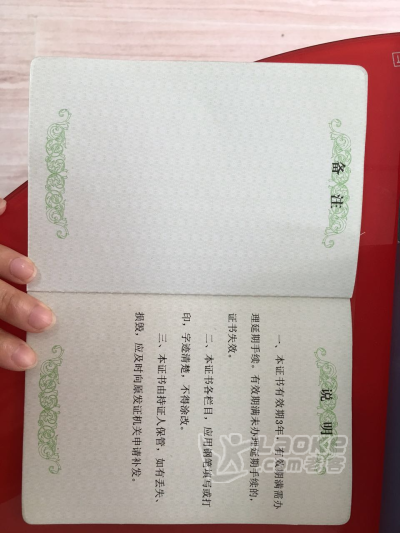 备 注
说 明
一、本证书有效期3年,有效期满需办
理延期手续。有效期满未办理延期手续的,
证书失效。
二、本证书各栏目,应用钢笔填写或打
印,字迹清楚,不得涂改。
三、本证书由持证人保管,如有丢失、
损毁,应及时向原发证机关申请补发。
Laoke
.com老客